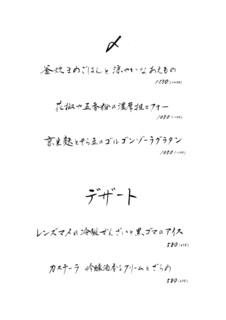 〆
釜炊きめごはんと涼やかなあえもの
1180
花椒や五香粉の濃厚担々フォー
1080
京生麩とゆり豆のゴルゴンゾーラグラタン
1080
デザート
レンズマメの冷製ぜんざいと黒ゴマのアイス
580
カステーラ 吟醸酒香るクリームとざらめ
580